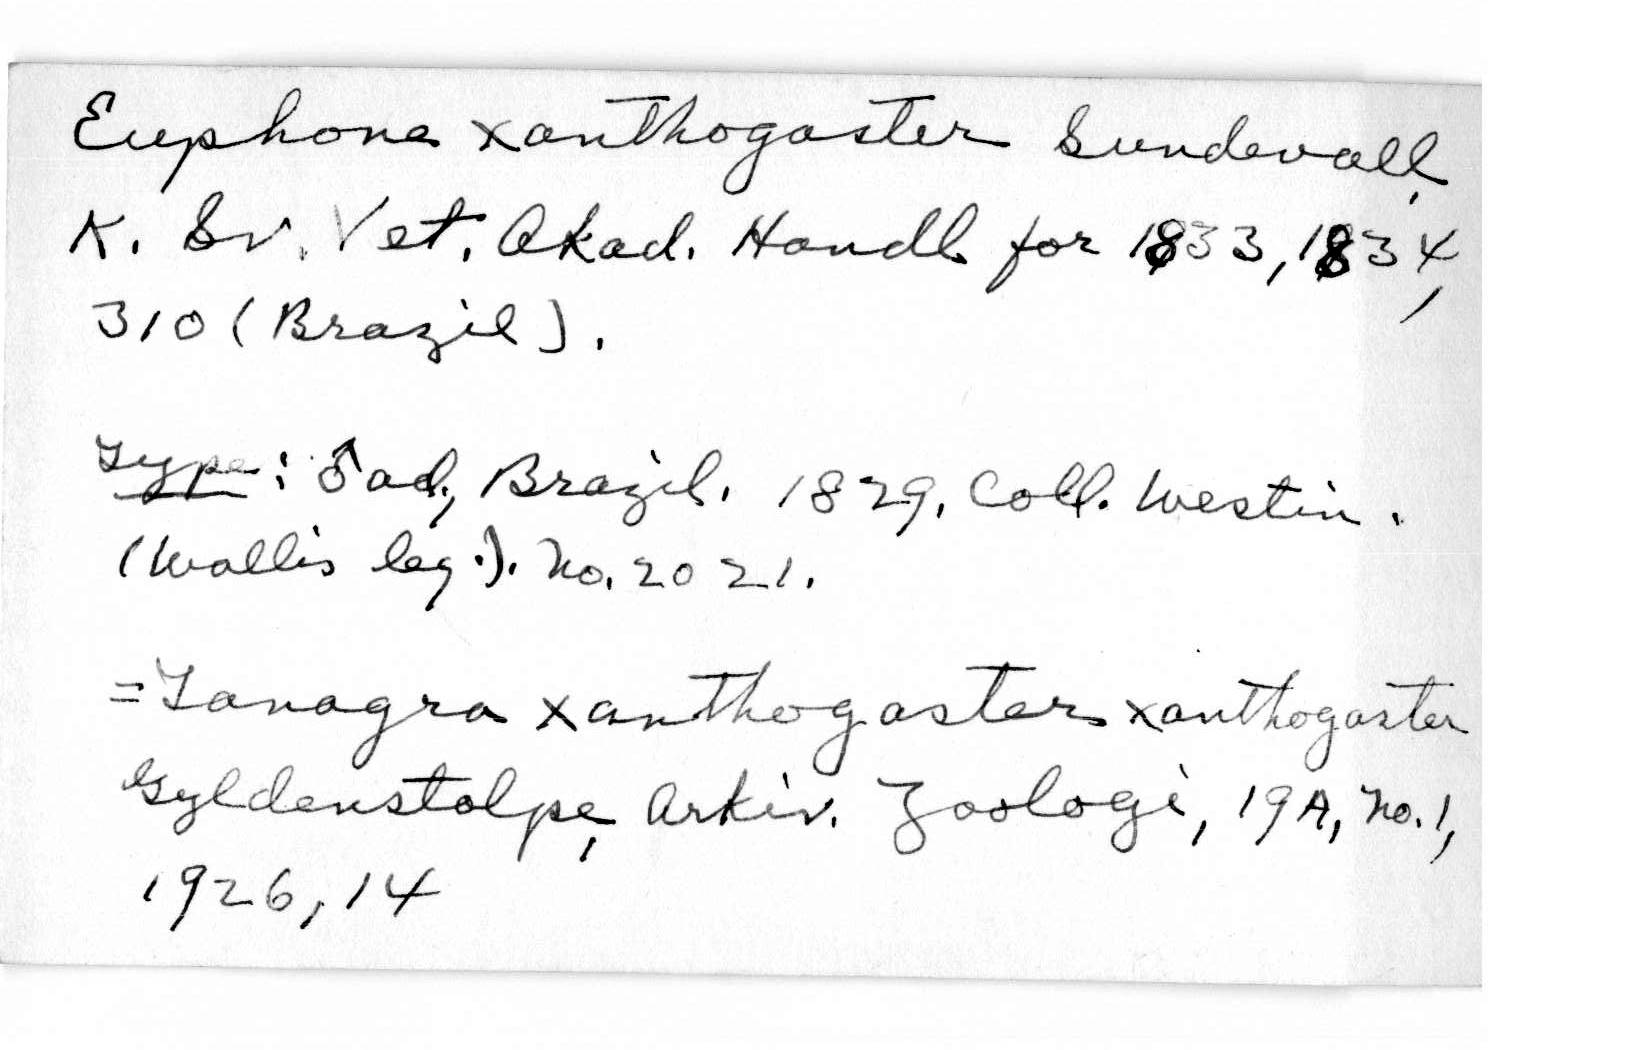 Euphone xanthogaster Sundevall,
K. Sv. Vet. Akad. Handl. for 1833, 1834,
310 (Brazil).
Type: ♂ ad., Brazil. 1829. Coll. Westin.
(Wallis leg.). No. 2021.
=Tanagra xanthogaster xanthogaster
Gyldenstolpe, Arkiv. Zoologi, 19A, No. 1,
1926, 14